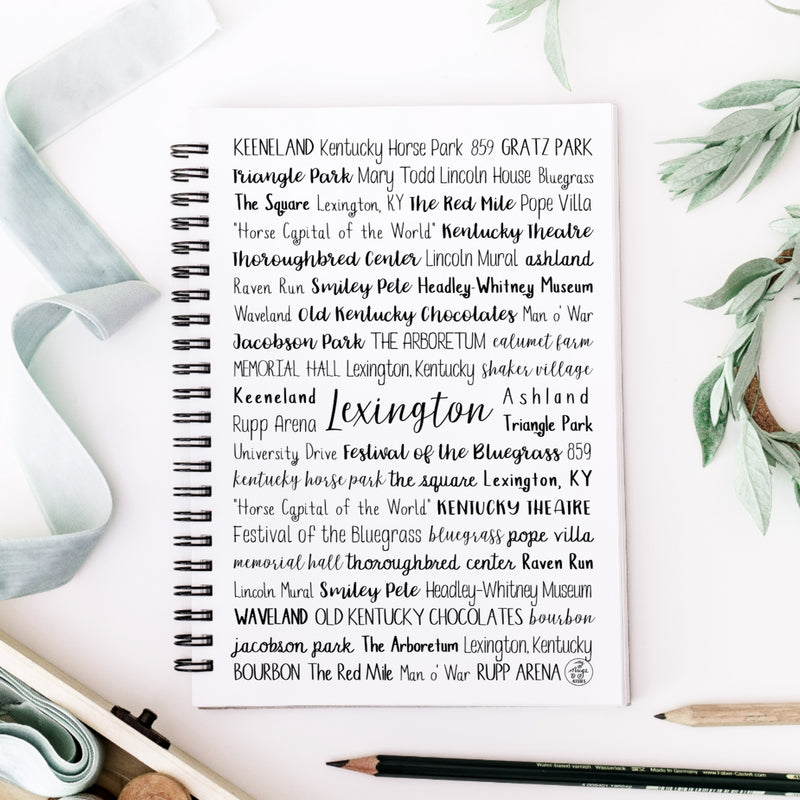 KEENELAND Kentucky Horse Park 859 GRATZ PARK
Triangle Park Mary Todd Lincoln House Bluegrass
The Square Lexington, KY The Red Mile Pope Villa
"Horse Capital of the World" Kentucky Theatre
Thoroughbred Center Lincoln Mural ashland
Raven Run Smiley Pete Headley-Whitney Museum
Waveland Old Kentucky Chocolates Man o' War
Jacobson Park THE ARBORETUM calumet farm
MEMORIAL HALL Lexington, Kentucky shaker village
Keeneland Lexington Ashland
Rupp Arena Triangle Park
University Drive Festival of the Bluegrass 859
kentucky horse park the square Lexington, KY
"Horse Capital of the World" KENTUCKY THEATRE
Festival of the Bluegrass bluegrass pope villa
memorial hall thoroughbred center Raven Run
Lincoln Mural Smiley Pete Headley-Whitney Museum
WAVELAND OLD KENTUCKY CHOCOLATES bourbon
jacobson park The Arboretum Lexington, Kentucky
BOURBON The Red Mile Man o' War RUPP ARENA
Made in Germany www.Faber-Castell.com